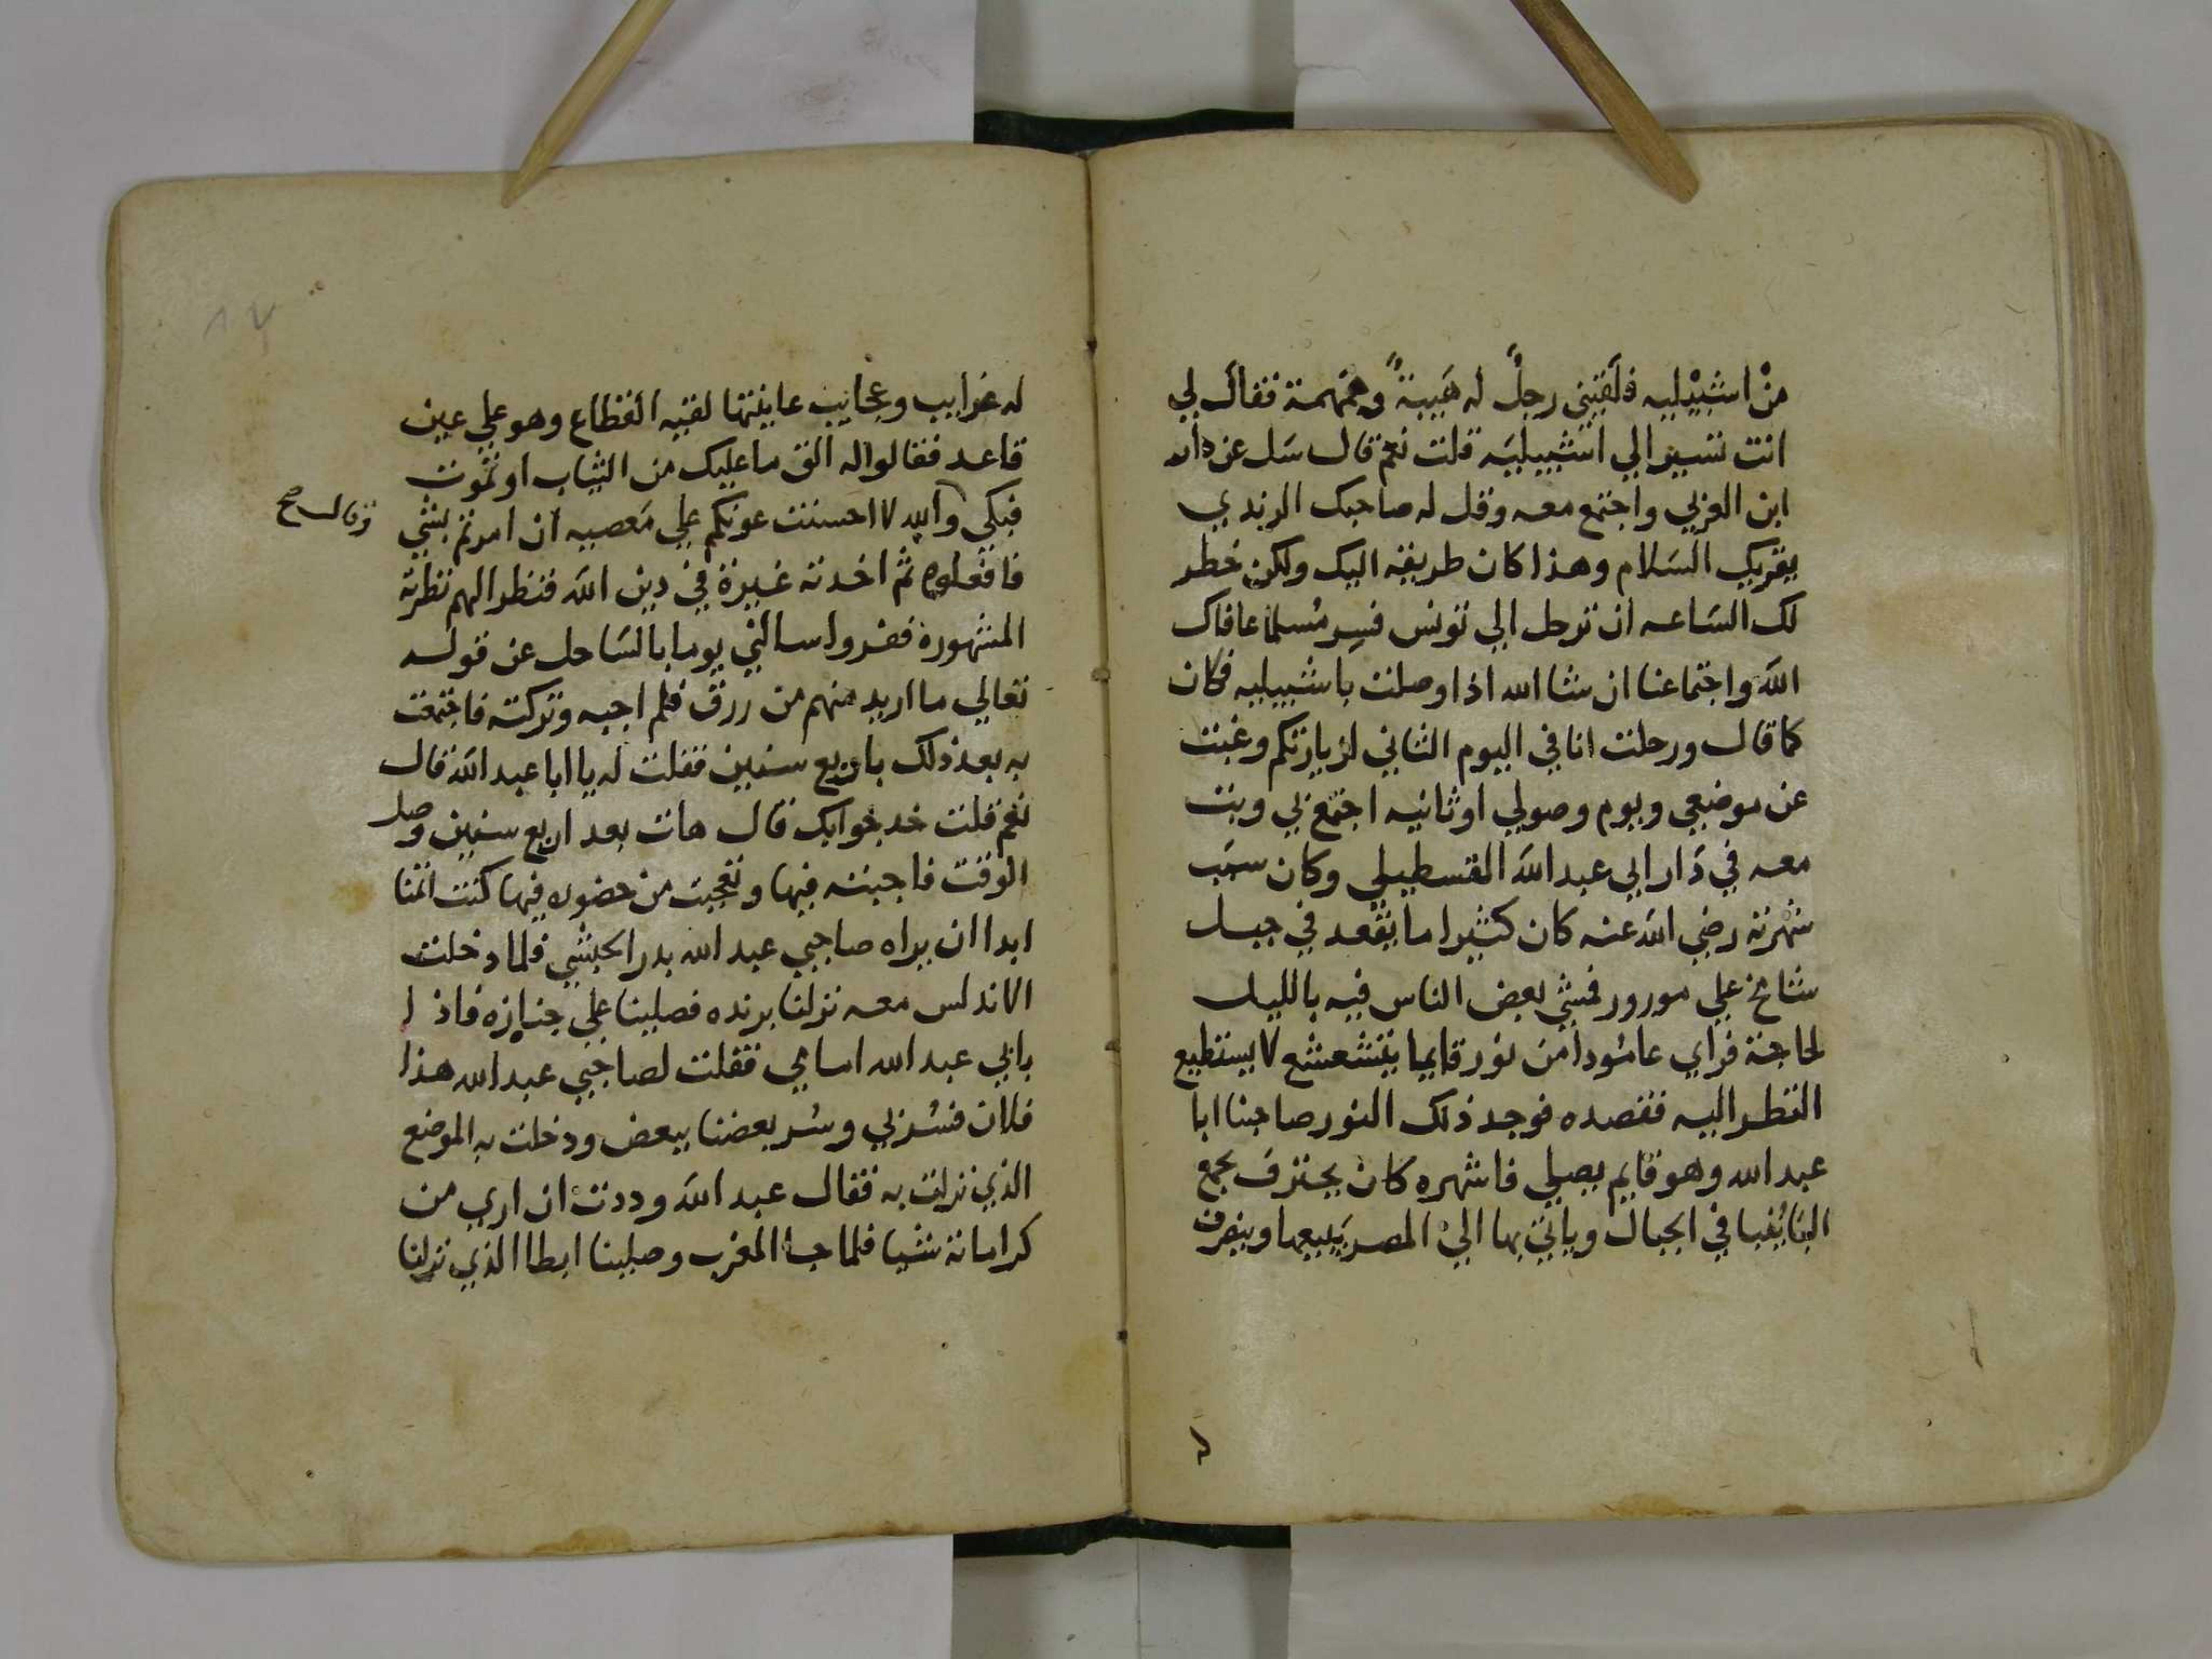 من اشبيليه فلقيني رجلٌ له هيبةً وهمهمة فقال لي
انت تسير الي اشبيليه قلت نعم قال سل عن دار
ابن العربي واجتمع معه وقل له صاحبك الرندي
يقريك السلام وهذا كان طريقه اليك ولكن خطر
لك الساعه ان ترحل الي تونس فسر مسلما عافاك
الله واجتماعنا ان شا الله اذا وصلت باشبيليه فكان
كما قال ورحلت انا في اليوم الثاني لزيارتكم وغبت
عن موضعي ويوم وصولي او ثانيه اجتمع بي وبت
معه في دار ابي عبد الله القسطيلي وكان سبب
شهرته رضي الله عنه كان كثيرا ما يقعد في جبل
شامخ علي مورور فمشي بعض الناس فيه بالليل
لحاجة فراي عامودا من نور قايما يتشعشع لا يستطيع
النظر اليه فقصده فوجد ذلك النور صاحبنا ابا
عبد الله وهو قايم يصلي فاشهره كان يحترف بجمع
في الجبال وياتي بها الي المصر يبيعها
له
له غرايب وعجايب عاينتها لقيه القطاع وهو علي عين
قاعد فقالوا له الق ما عليك من الثياب او تموت
فبكي والله لا احسنت عونكم علي معصيه ان امرتم بشي
وقال صح
فافعلوه ثم اخدته غيرة في دين الله فنظر الهم نظرته
المشهورة ففروا سالني يوما بالساحل عن قوله
تعالي ما اريد منهم من رزق فلم اجبه وتركته فاجتمعت
به بعد ذلك باربع سنين فقلت له يا ابا عبد الله قال
نعم قلت خد جوابك قال هات بعد اربع سنين وصل
الوقت فاجبته فيها وتعجبت من حضوره فيها كنت اتمنا
ابدا ان يراه صاحبي عبد الله بدر الحبشي فلما دخلت
الاندلس معه نزلنا برنده فصلينا علي جنازه فاذا
بابي عبد الله امامي فقلت لصاحبي عبد الله هذا
فلان فسر بي وسر بعضنا ببعض ودخلت به الموضع
الذي نزلت به فقال عبد الله وددت ان اري من
كراماته شيا فلما جا المغرب وصلينا ابطا الذي نزلنا
٨٧